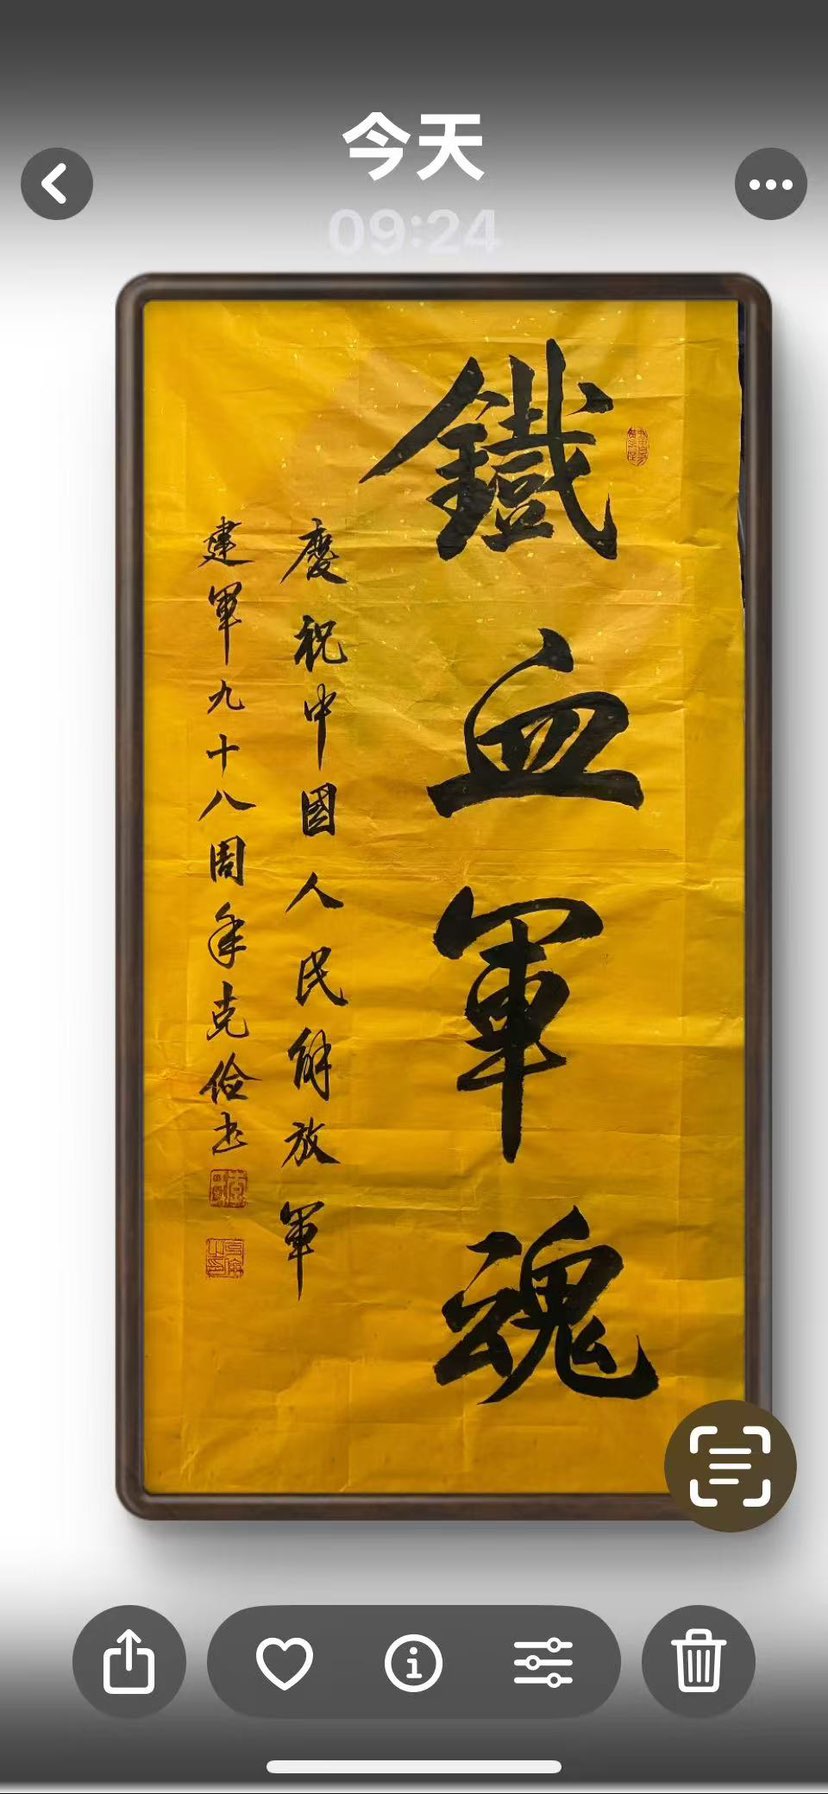 今天
09:24
鐵血軍魂
慶祝中國人民解放軍
建軍九十八周年克俭书